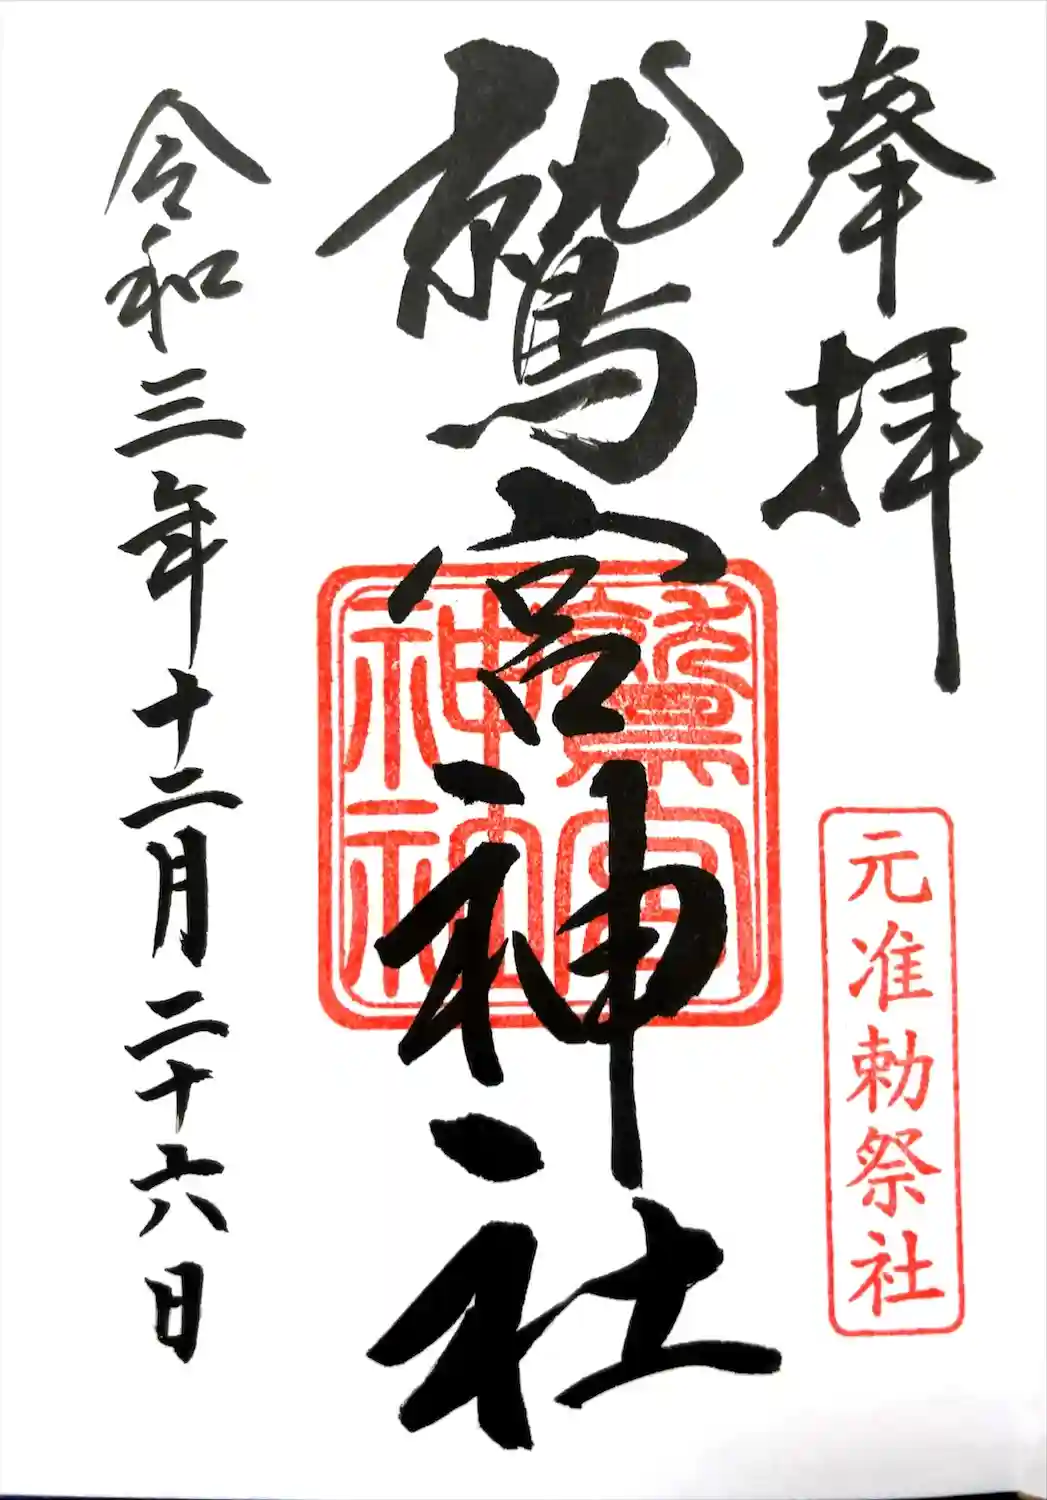 奉拝
元准勅祭社
鷲宮神社
鷲宮
神社
令和三年十二月二十六日